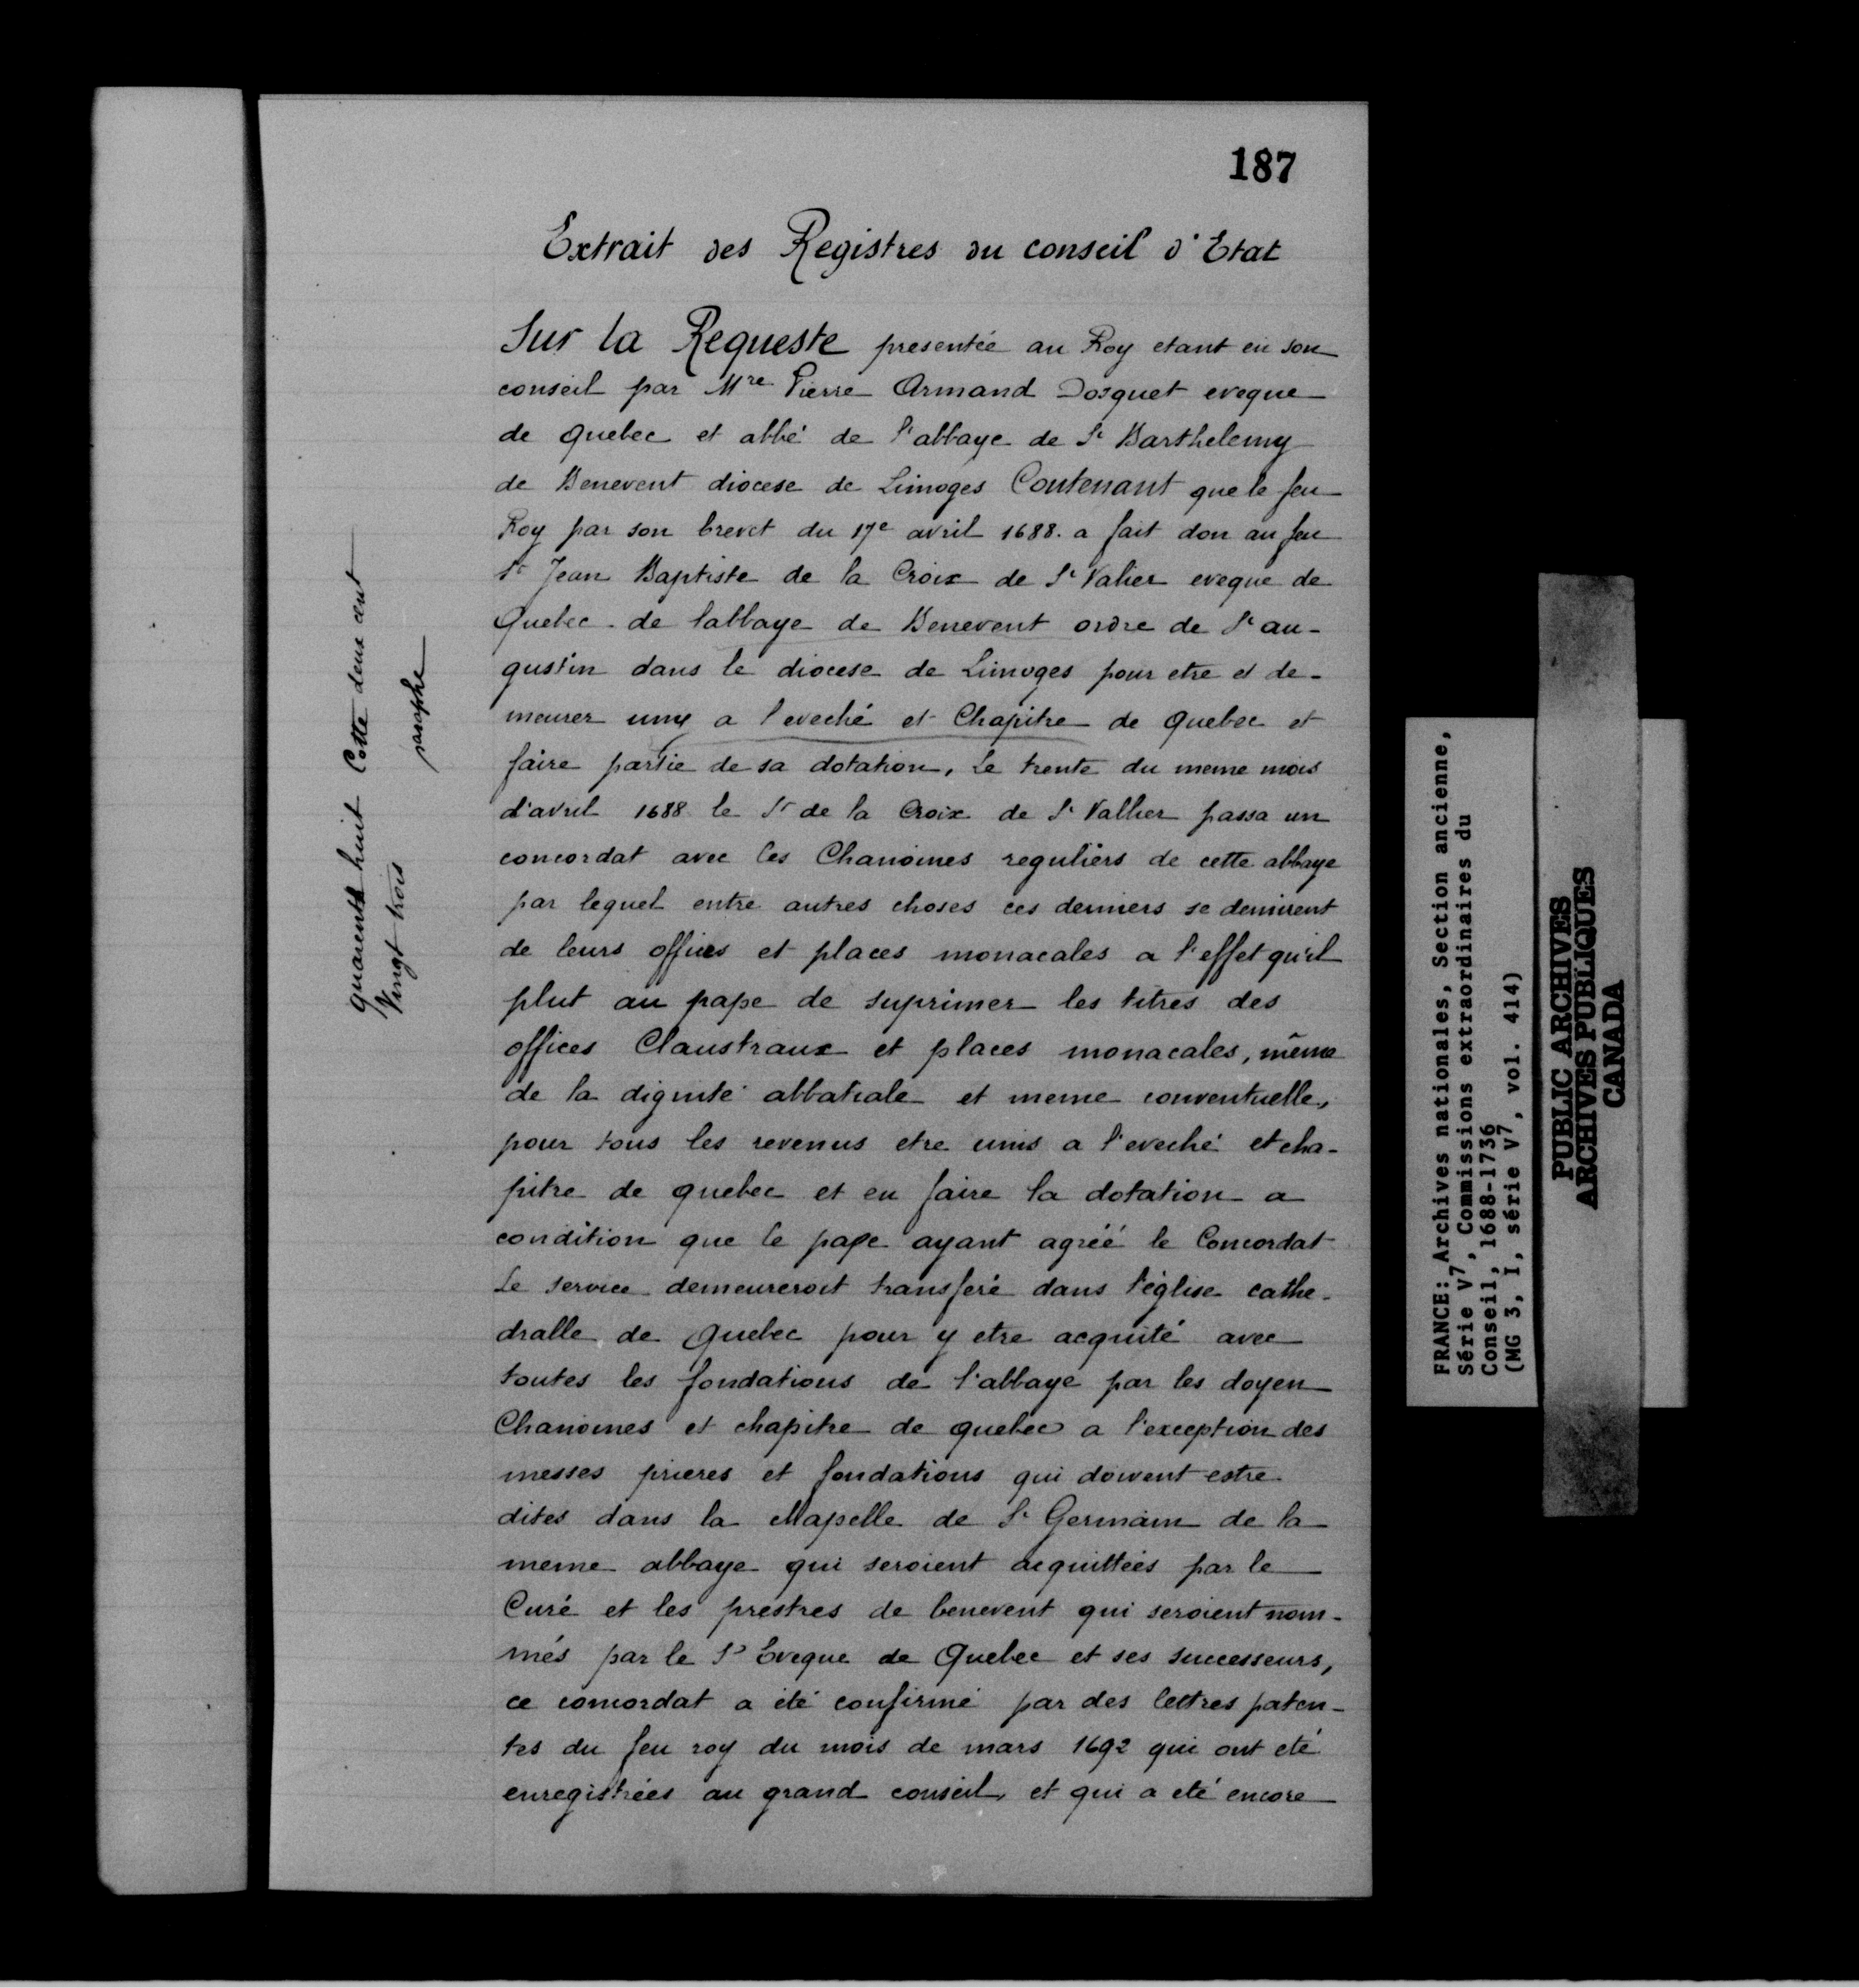 187
Extrait des Registres du conseil d'Etat
Sur la Requeste presentée au Roy etant en son
conseil par Mre Pierre Armand Dosquet eveque
de Quebec et abbé de l'abbaye de St Barthelemy
de Benevent diocese de Limoges Contenant que le feu
Roy par son brevet du 17e avril 1688. a fait don au feu
Sr Jean Baptiste de la Croix de St Valier eveque de
Quebec de labbaye de Benevent ordre de St au-
gustin dans le diocese de Limoges pour etre et de-
meurer uny a l'eveché et Chapitre de Quebec et
faire partie de sa dotation, Le trente du meme mois
d'avril 1688 le Sr de la Croix de St Vallier passa un
concordat avec les Chanoines reguliers de cette abbaye
par lequel entre autres choses ces derniers se demirent
de leurs offices et places monacales a l'effet qu'il
plut au pape de suprimer les titres des
offices Claustraux et places monacales, même
de la dignité abbatiale et meme conventuelle,
pour tous les revenus etre unis a l'eveché et cha-
pitre de quebec et en faire la dotation a
condition que le pape ayant agréé le Concordat
Le service demeureroit transferé dans l'église cathe-
dralle de Quebec pour y etre acquité avec
toutes les fondations de l'abbaye par les doyen
Chanoines et chapitre de quebec a l'exception des
messes prieres et fondations qui doivent estre
dites dans la chapelle de St Germain de la
meme abbaye qui seroient acquittées par le
Curé et les prestres de benevent qui seroient nom-
més par le Sr Eveque de Quebec et ses successeurs,
ce concordat a été confirmé par des lettres paten-
tes du feu roy du mois de mars 1692 qui ont eté
enregistrées au grand conseil, et qui a eté encore
quarente huit Cotte deux cent
Vingt trois paraphe
FRANCE: Archives nationales, Section ancienne,
Série V7, Commissions extraordinaires du
Conseil, 1688-1736
(MG 3, I, série V7, vol. 414)
PUBLIC ARCHIVES
ARCHIVES PUBLIQUES
CANADA